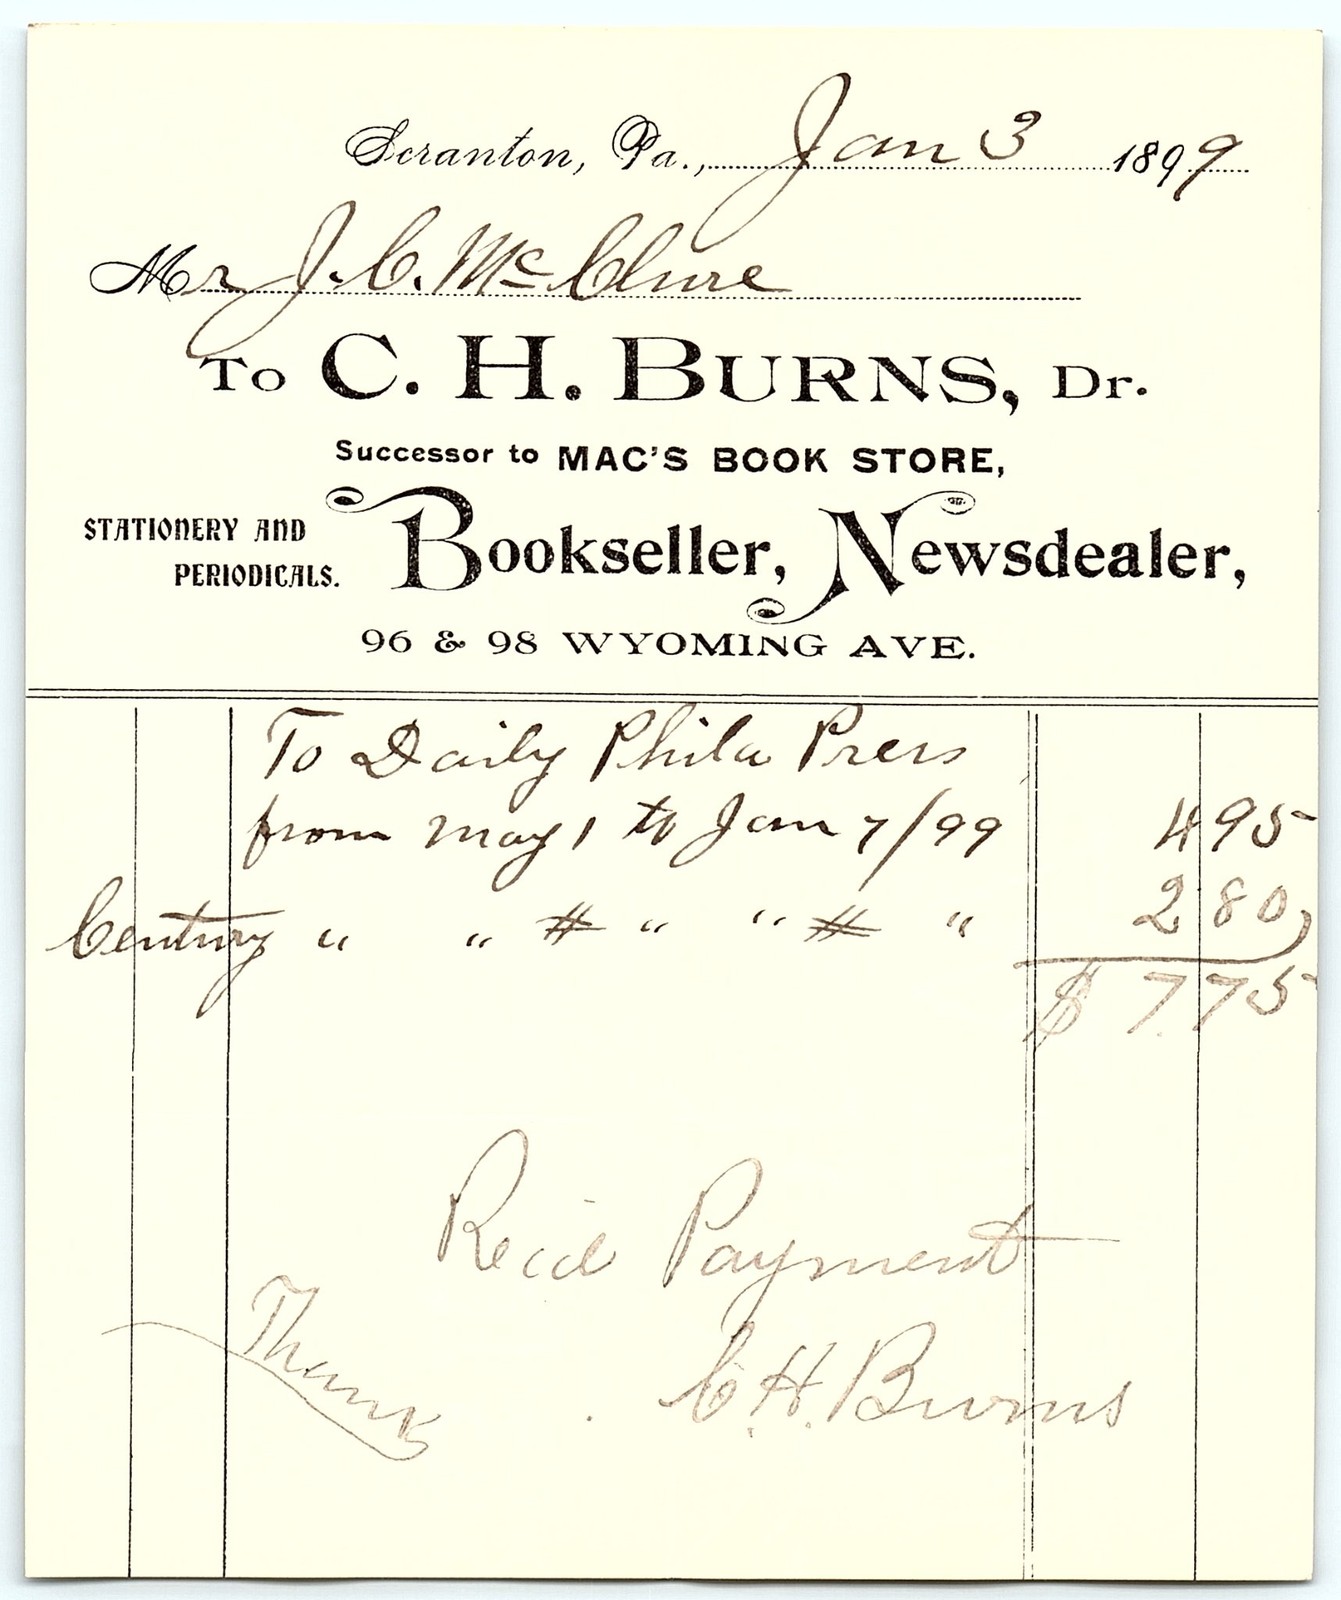 Scranton, Pa., Jan 3 1899
Mr J. C. McClure
To C. H. BURNS, Dr.
Successor to MAC'S BOOK STORE,
STATIONERY AND PERIODICALS.
Bookseller, Newsdealer,
96 & 98 WYOMING AVE.
To Daily Phila Press
from May 1 to Jan 7/99 4 95
Century " " # " " # " 2 80
$ 7.75
Recd Payment
Thanks
C. H. Burns